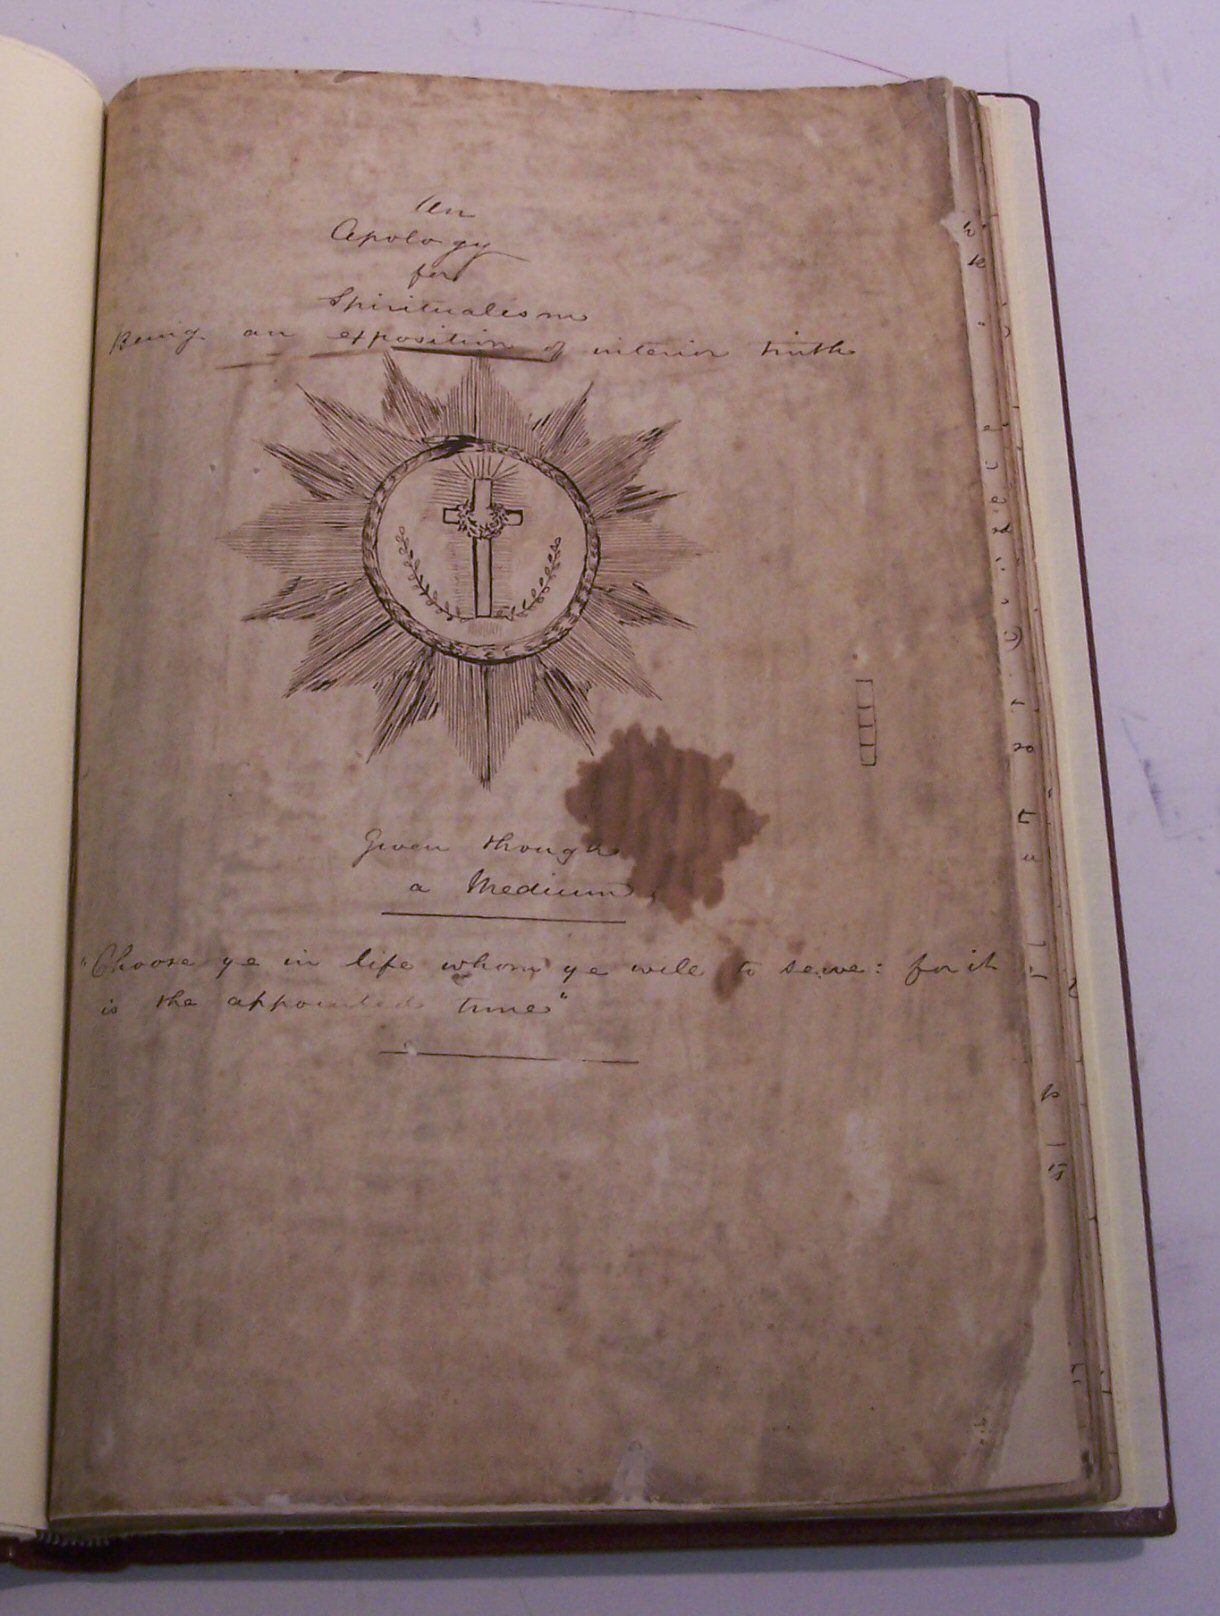 An
Apology
for
Spiritualism
Being an exposition of interior truth
Given though
a Medium,
"Choose ye in life whom ye will to serve: for it
is the appointed time"